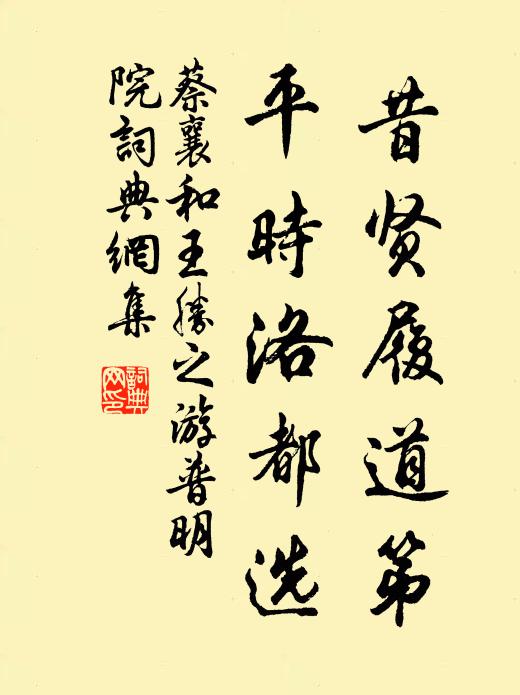 昔贤履道第
平時洛都选
蔡襄和王勝之游普明
院詞典網集
詞典
网印